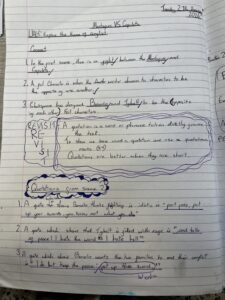 Montagues VS Capulets
LO: Explore the theme of conflict
Connect
1. In the first scene, there is an between the Montagues and
Capulets
2. A put Characters is when the author writes characters to be
the opposite of one another.
3. Shakespeare has designed Benvolio and Tybalt to be the opposite
of each other. Foil characters
REVISIT
RE
V
I
S
I
T
A quotation is a word or phrase taken directly from
the text.
To show we have used a quotation we use quotation
marks (" ")
Quotations are better when they are short.
Quotations from scene 1
1. A quote that shows Benvolio thinks fighting is idiotic is "part fools, put
up your swords you know not what you do"
2. A quote which shows that Tybalt is filled with rage is "
peace! I hate the word as I hate hell"
3. A quote which shows Benvolio wants the two families to end their conflict
is "I do but keep the peace, put up thy sword"